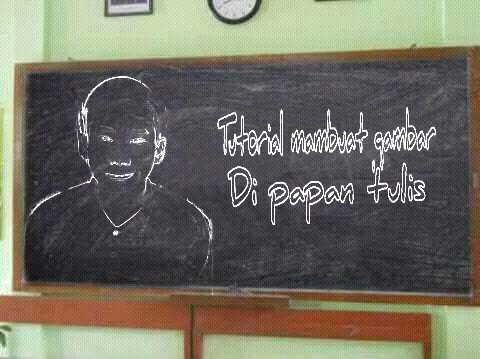 Tutorial mambuat gambar
Di papan tulis